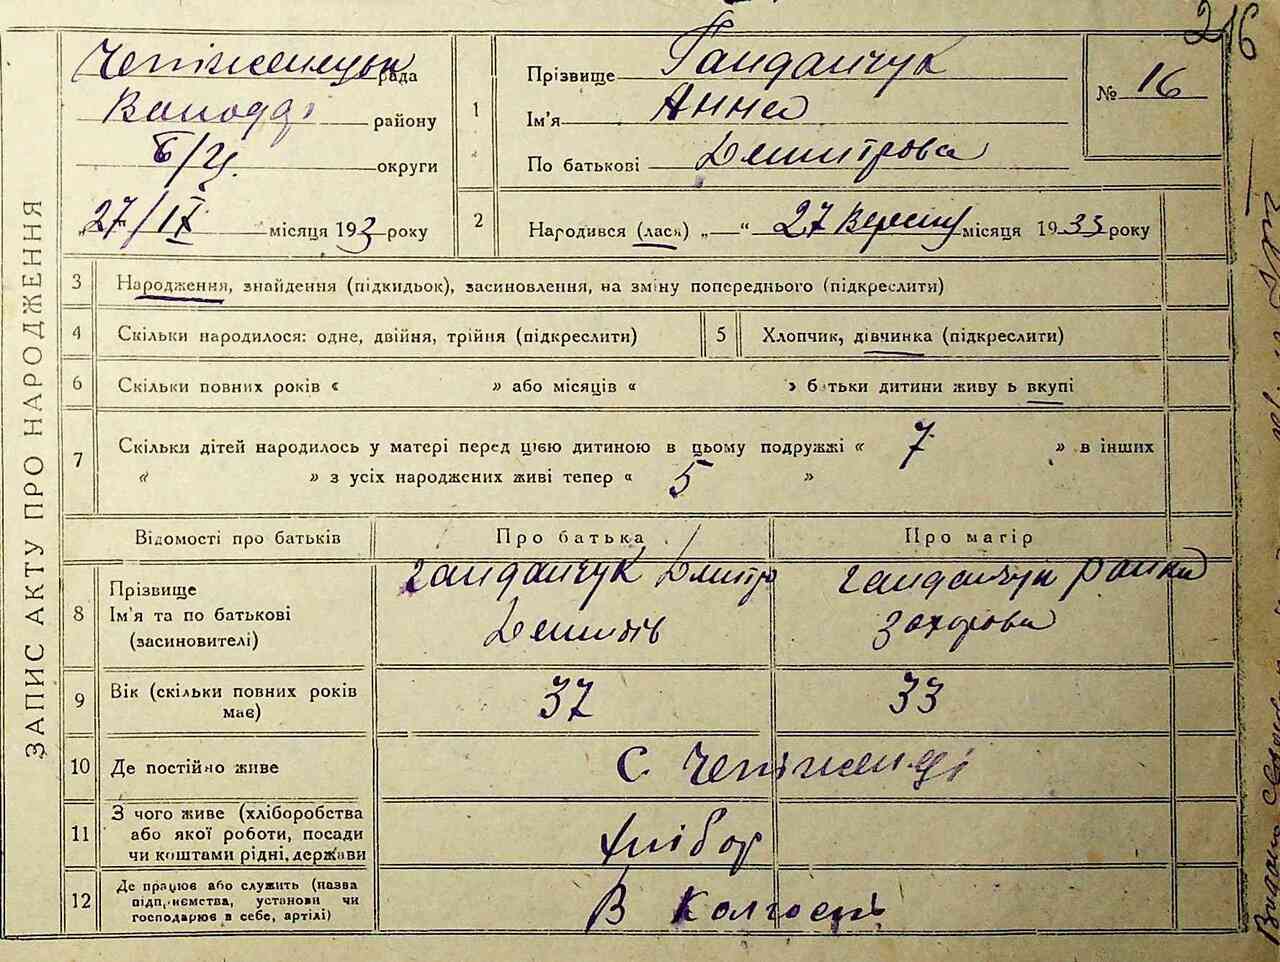 216
ЗАПИС АКТУ ПРО НАРОДЖЕННЯ
рада
району
Б/Ц. округи
27/IX місяця 1933 року
1
Прізвище Гандайчук
Ім'я Анна
По батькові Дмитрова
№ 16
2 Народився (лася) „—“ 27 Вересня місяця 1933 року
3 Народження, знайдення (підкидьок), засиновлення, на зміну попереднього (підкреслити)
4 Скільки народилося: одне, двійня, трійня (підкреслити) 5 Хлопчик, дівчинка (підкреслити)
6 Скільки повних років « » або місяців « » батьки дитини живуть вкупі
7 Скільки дітей народилось у матері перед цією дитиною в цьому подружжі « 7 » в інших
« » з усіх народжених живі тепер « 5 »
Відомості про батьків Про батька Про матір
8 Прізвище
Ім'я та по батькові
(засиновителі)
Гандайчук Дмитро
Демидів
Гандайчук
Захорова
9 Вік (скільки повних років
має)
37 33
10 Де постійно живе С. Чепіженці
11 З чого живе (хліборобства
або якої роботи, посади
чи коштами рідні, держави
Хлібор
12 Де працює або служить (назва
підприємства, установи чи
господарює в себе, артілі)
В Колгоспі